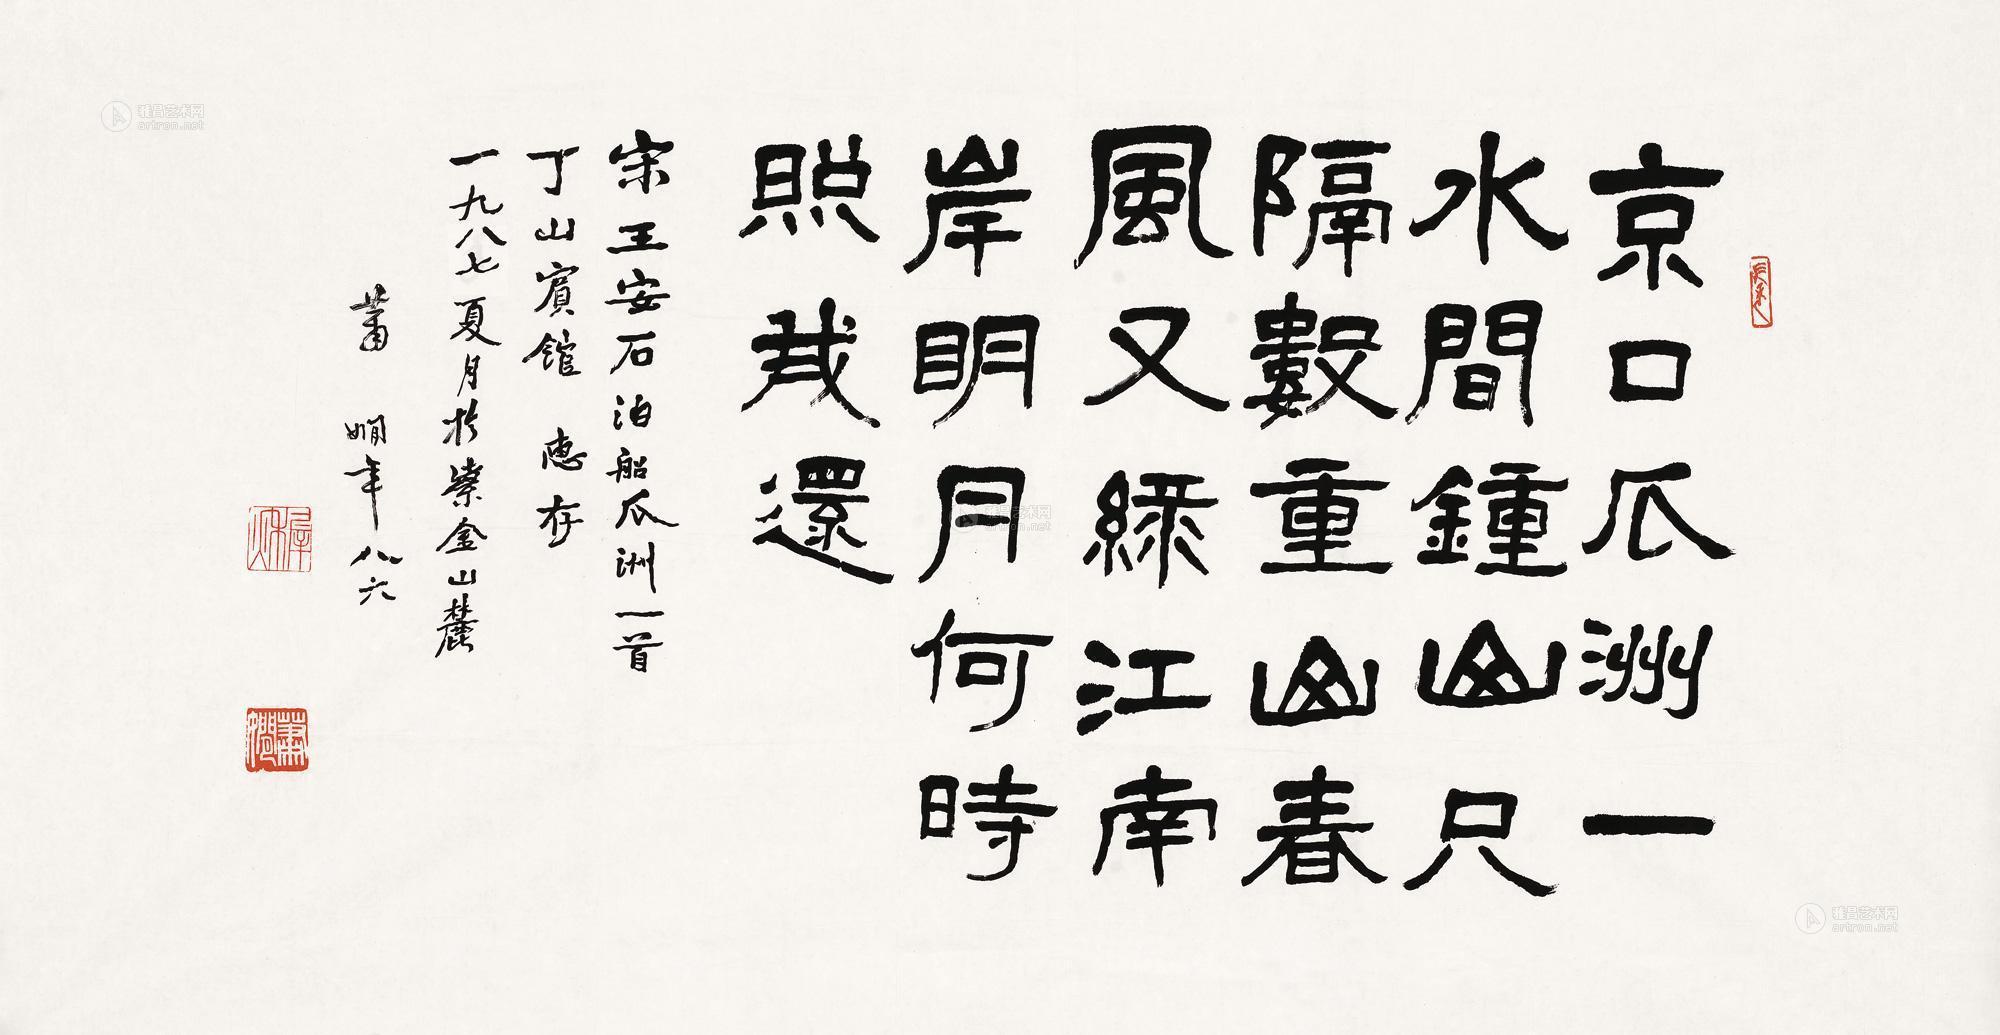 京口瓜洲一
水間鍾山只
隔數重山春
風又綠江南
岸明月何時
照我還
宋王安石泊船瓜洲一首
丁山賓館 惠存
一九八七夏月於紫金山麓
蕭嫻年八六
蕭嫻
雅昌艺术网
artron.net
雅昌艺术网
artron.net
雅昌艺术网
artron.net